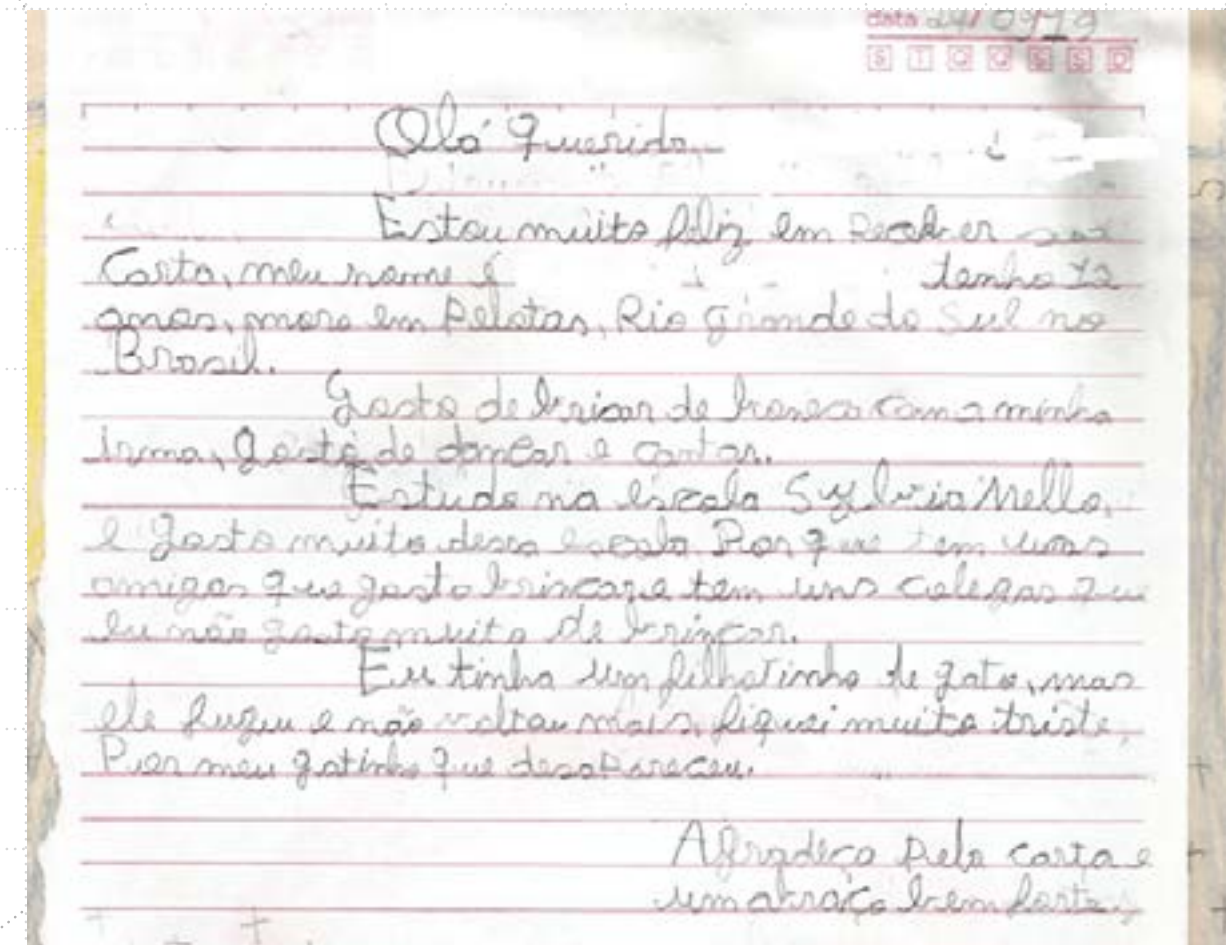 data 24/09/19
S T Q Q S S D
Olá querido,
Estou muito feliz em Receber sua
Carta, meu nome é tenho 12
anos, moro em Pelotas, Rio grande do Sul no
Brasil.
Gosto de brisar de boneca com a minha
irma, gosto de dançar e cantar.
Estudo na escola Sylvia Mello,
e gosto muito dessa escola Por que tem umas
amigas que gosto brincar e tem uns colegas que
eu não gosto muito de brincar.
Eu tinha um filhotinho de gato, mas
ele fugiu e não voltou mais, fiquei muito triste,
Por meu gatinho que desapareceu.
Agradeço pela carta e
um abraço bem forte,